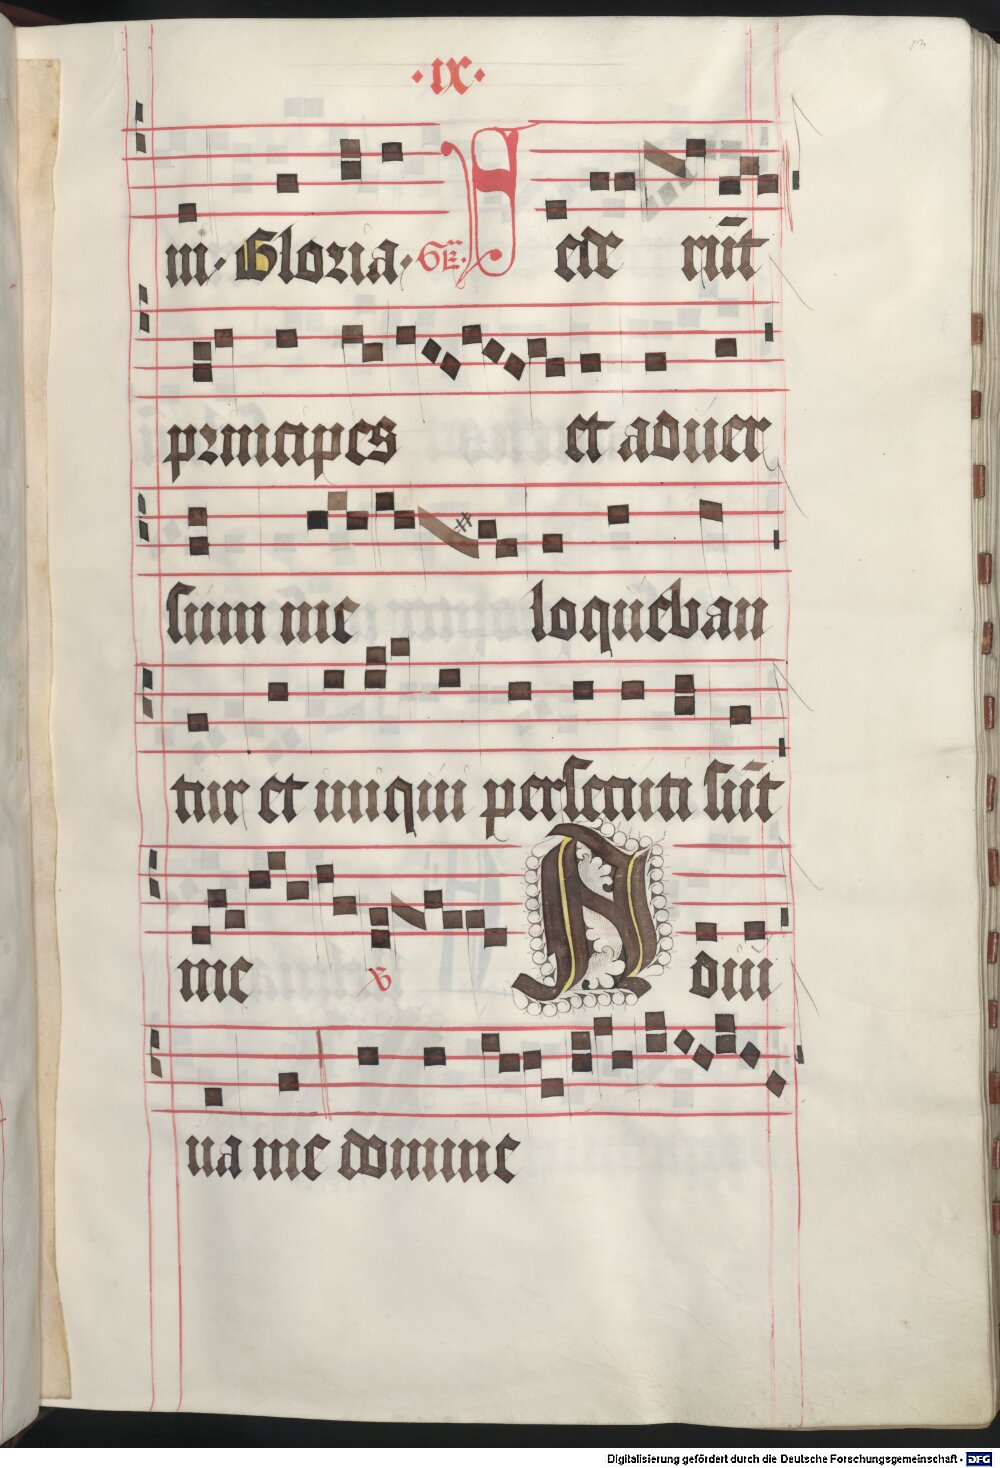 ·ıx·
m· Gloria· Gr̄· Sede rūt
principes et aduer
sum me loqueban
tur et iniqui persecuti sūt
me ℣ Adiu
ua me domine
Digitalisierung gefördert durch die Deutsche Forschungsgemeinschaft - DFG